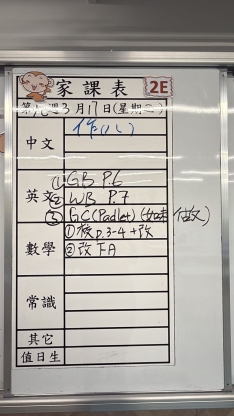 家課表 2E
第九週 3月17日(星期二)
中文 作(八)
英文 ① GB P.6
② WB P.7
③ GC(Padlet)
數學 ① 校 p.3-4+改
② 改下A
常識
其它
值日生